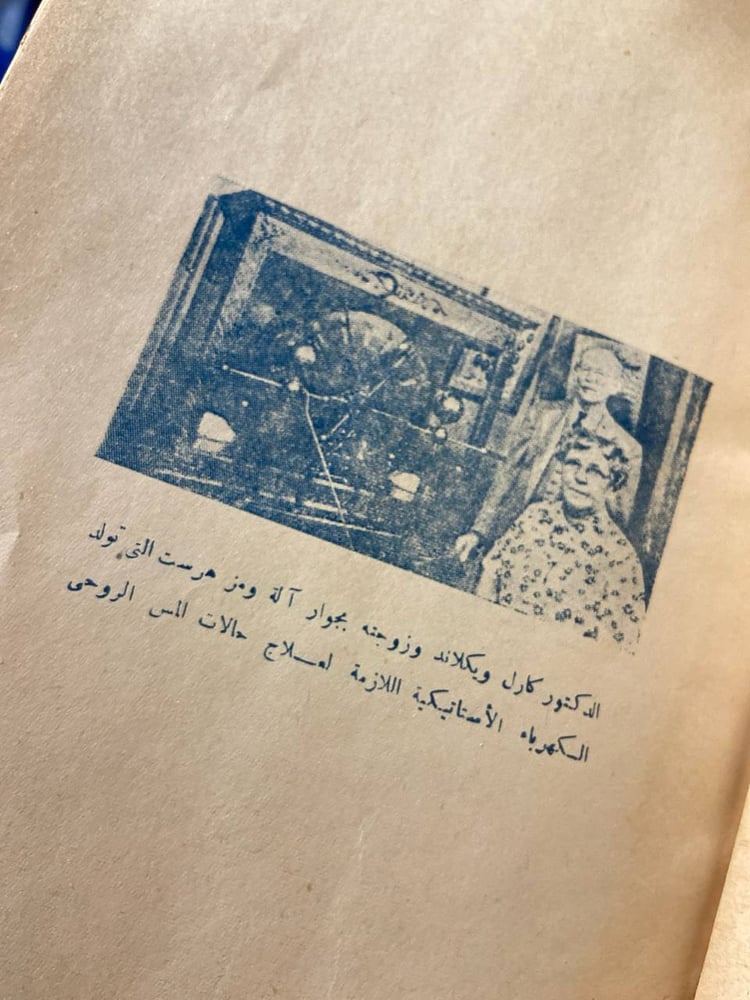 الدكتور كارل ويكلاند وزوجته بجوار آلة ومز هرست التى تولد
الكهرباء الأستاتيكية اللازمة لعلاج حالات المس الروحى